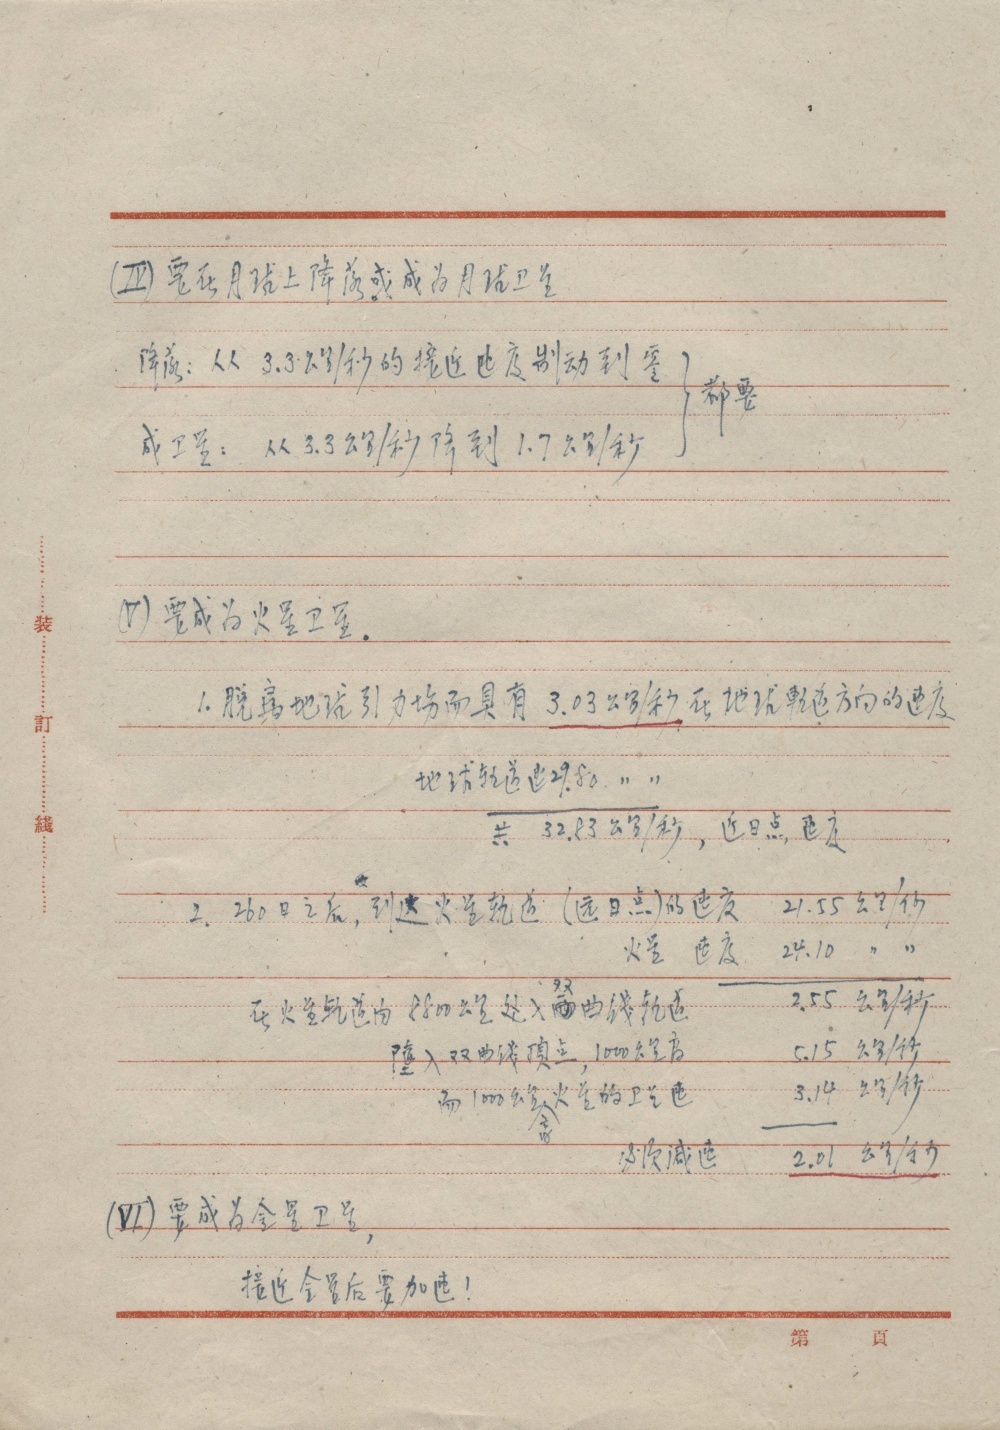 (IV) 要在月球上降落或成为月球卫星
降落：从 3.3公里/秒的接近速度制动到零
都要
成卫星：从3.3公里/秒降到 1.7公里/秒
(V) 要成为火星卫星.
1. 脱离地球引力场而具有 3.03公里/秒在地球轨道方向的速度
地球轨道速29.80 〃 〃
共 32.83公里/秒, 近日点速度
2. 260日之后, 到达火星轨道(远日点)的速度 21.55公里/秒
火星 速度 24.10 〃 〃
在火星轨道内 8800公里处入双曲线轨道 2.55 公里/秒
堕入双曲线顶点, 1000公里高 5.15 公里/秒
而1000公里高火星的卫星速 3.14 公里/秒
必须减速 2.01 公里/秒
(VI) 要成为金星卫星,
接近金星后要加速!
装
訂
綫
第 頁